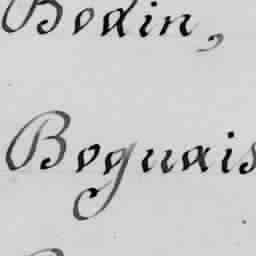 Bodin,
Boguais